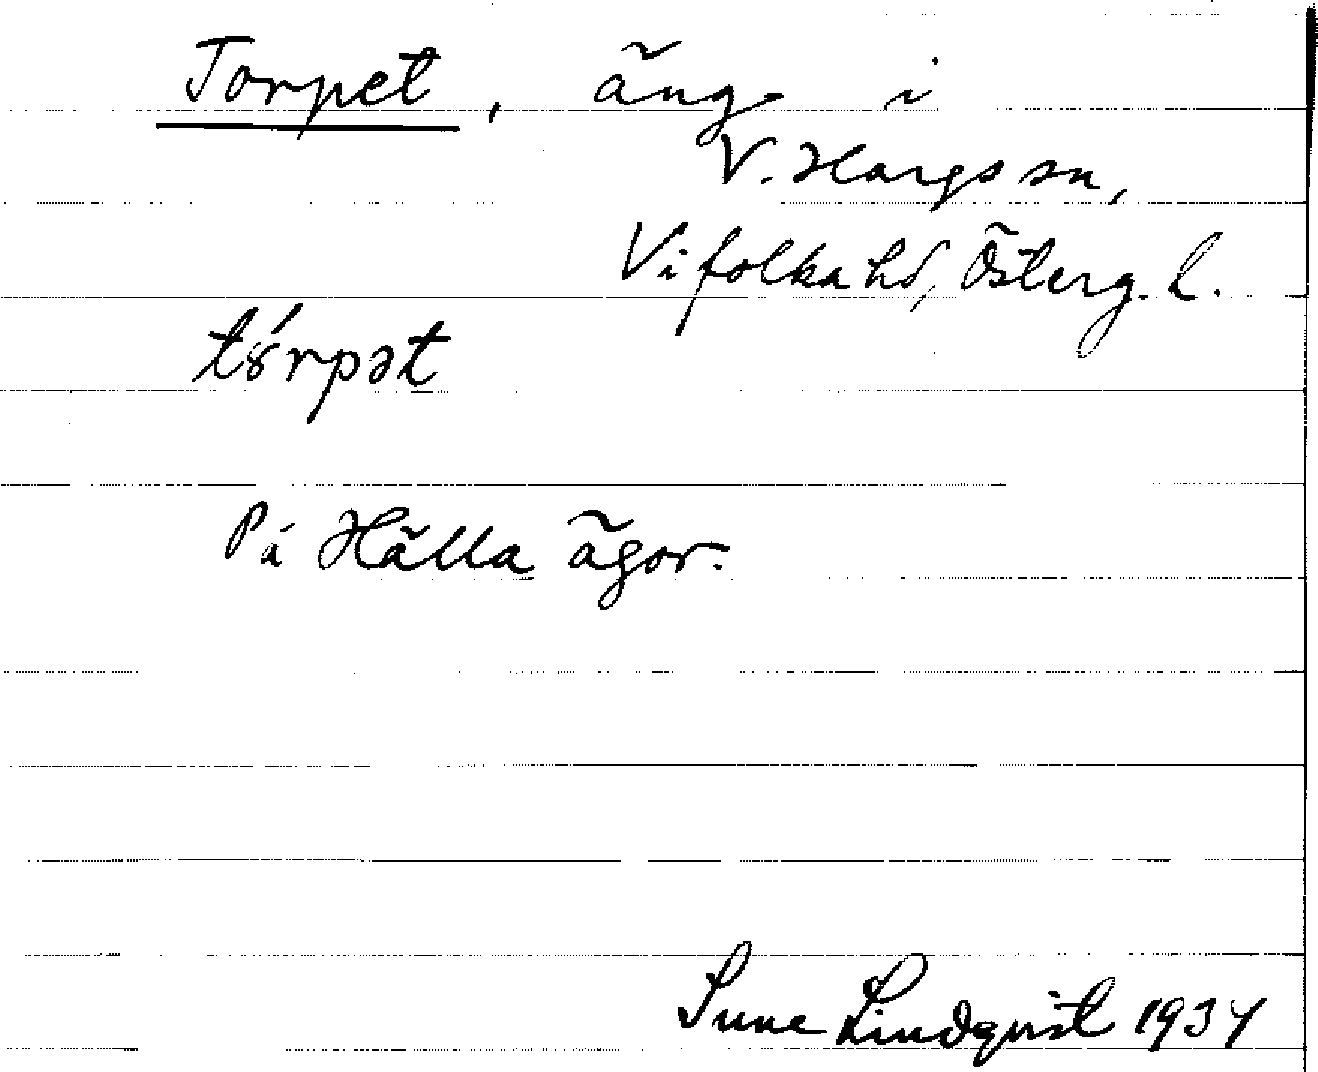 Torpet, äng i
V. Hargs sn,
Vifolka hd, Österg. l.
tȯ́rpət
På Hälla ägor.
Sune Lindqvist 1934